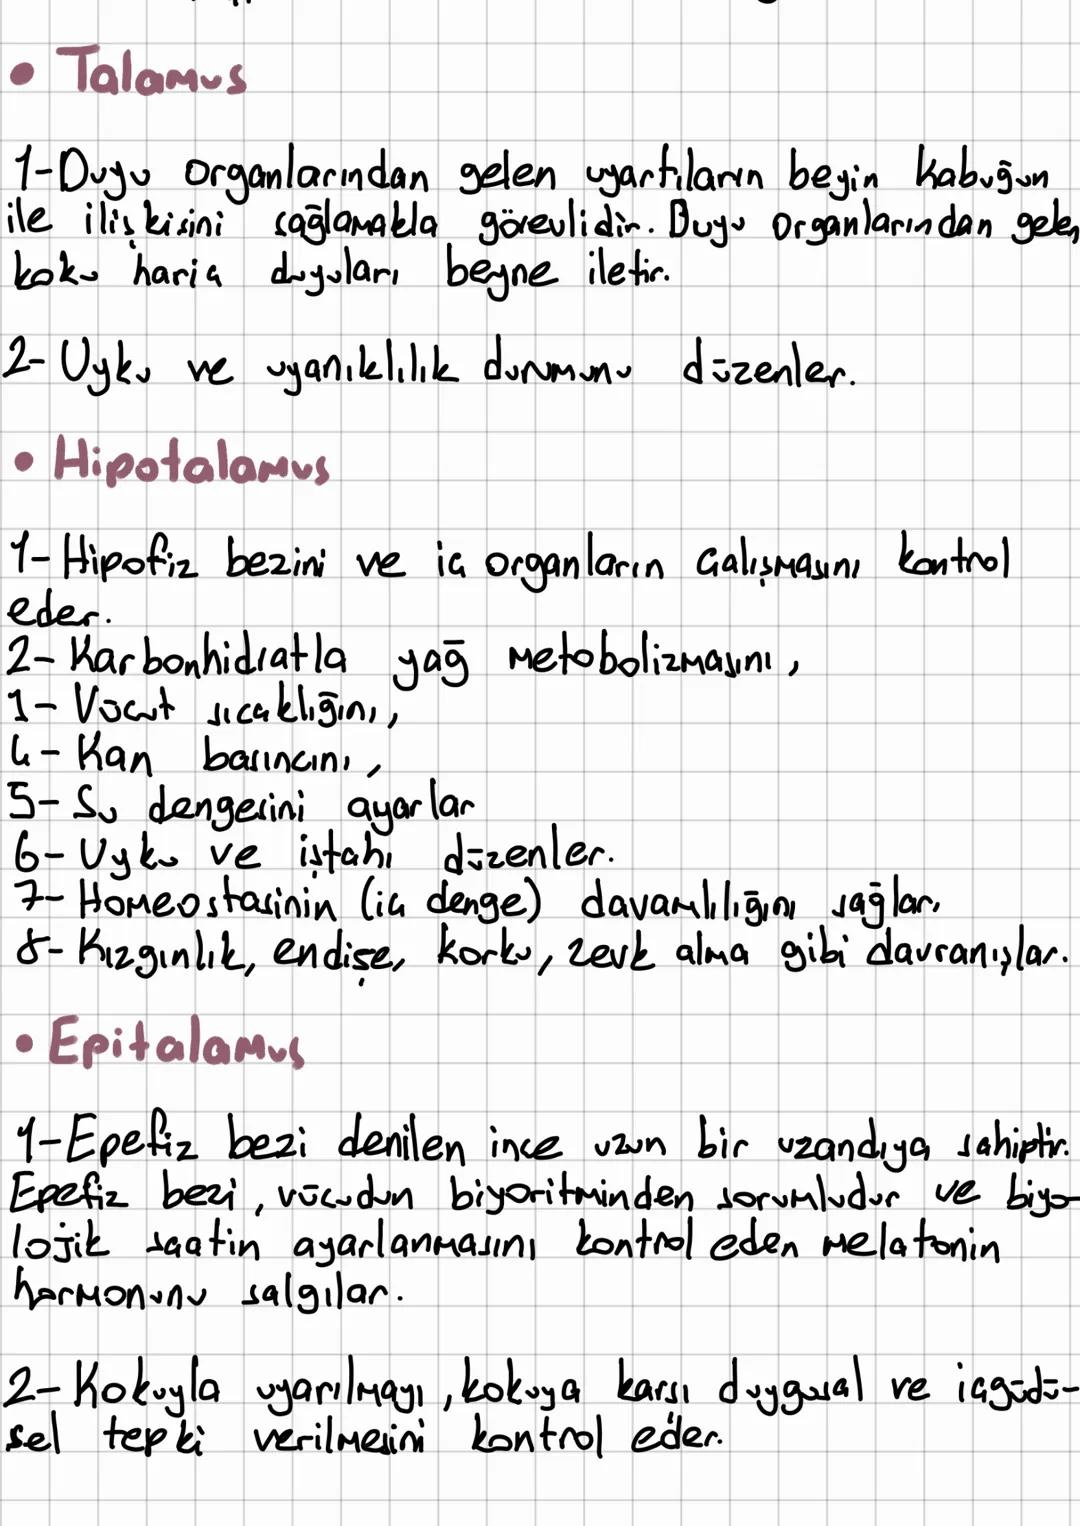 • Talamus
1-Duyu organlarından gelen uyartıların beyin kabuğun
ile ilişkisini sağlamakla görevlidir. Duyu organlarından gelen
koku hariç duyuları beyne iletir.
2- Uyku ve uyanıklılık durumunu düzenler.
• Hipotalamus
1- Hipofiz bezini ve iç organların çalışmasını kontrol
eder.
2- Karbonhidratla yağ metobolizmasını,
3- Vücut sıcaklığını,
4- Kan basıncını,
5- Su dengesini ayarlar
6- Uyku ve iştahı düzenler.
7- Homeostasinin (iç denge) davamlılığını sağlar,
8- Kızgınlık, endişe, korku, zevk alma gibi davranışlar.
• Epitalamus
1-Epefiz bezi denilen ince uzun bir uzandıya sahiptir.
Epefiz bezi, vücudun biyoritminden sorumludur ve biyo-
lojik saatin ayarlanmasını kontrol eden melatonin
hormonunu salgılar.
2- Kokuyla uyarılmayı, kokuya karşı duygusal ve içgüdü-
sel tepki verilmesini kontrol eder.